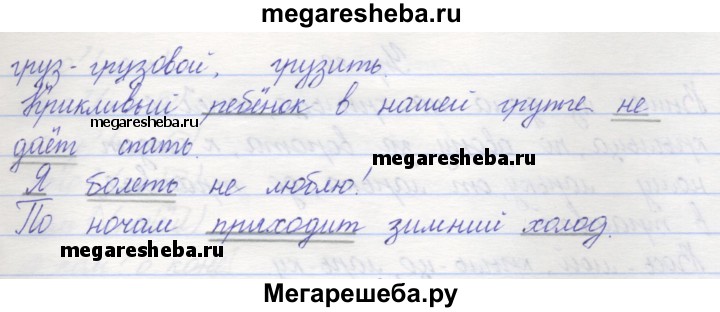 megaresheba.ru
груз - грузовой, грузить.
Крикливый ребёнок в нашей группе не
megaresheba.ru
даёт спать.
megaresheba.ru
Я болеть не люблю!
По ночам приходит зимний холод.
megaresheba.ru
Мегарешеба.ру